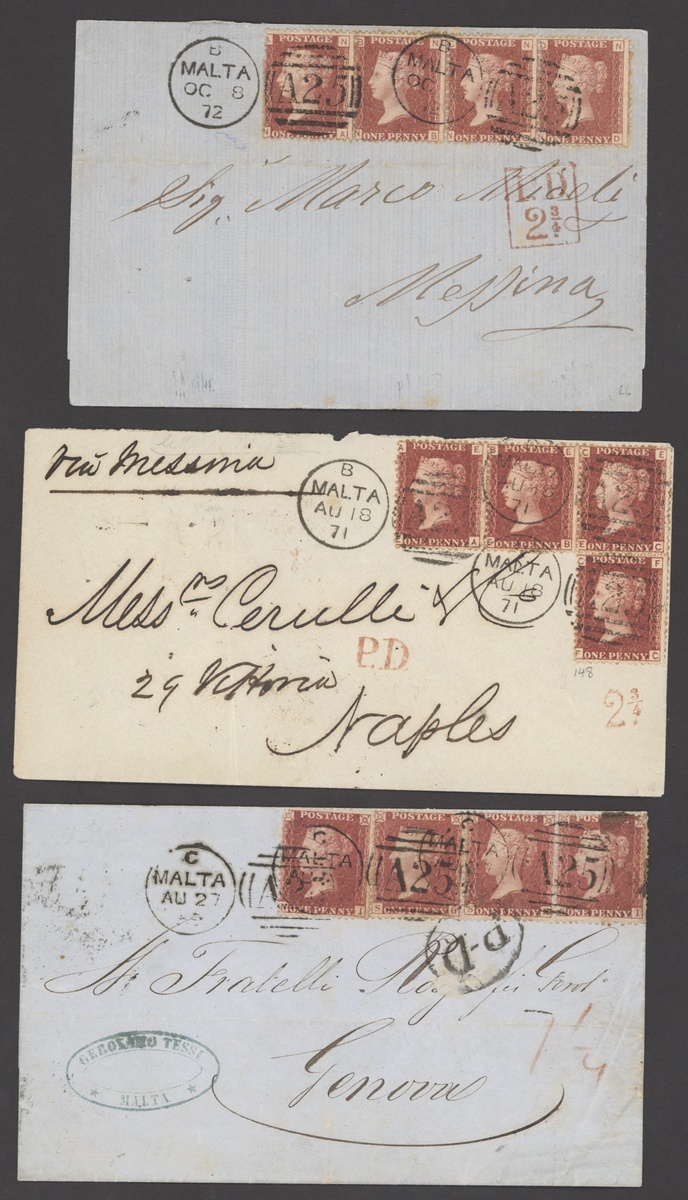 B
MALTA
OC 8
72
A25
N N N
POSTAGE POSTAGE POSTAGE POSTAGE
ONE PENNY ONE PENNY ONE PENNY ONE PENNY
A B D
B
MALTA
OC
72
Sig. Marco
P.D
2 3/4
Messina
via Messina
B
MALTA
AU 18
71
A E B E C E
POSTAGE POSTAGE POSTAGE
MALTA
AU 18
71
E A E B E C
ONE PENNY ONE PENNY ONE PENNY
MALTA
AU 18
71
C F
POSTAGE
F C
ONE PENNY
148
Messrs Cerulli &
P.D
29 Vittoria
2 3/4
Naples
POSTAGE POSTAGE POSTAGE
C
MALTA
AU 27
C
MALTA
MALTA
A25
A25
ONE PENNY ONE PENNY
P-D
Fratelli
GEROLAMO TESSI
MALTA
Genova